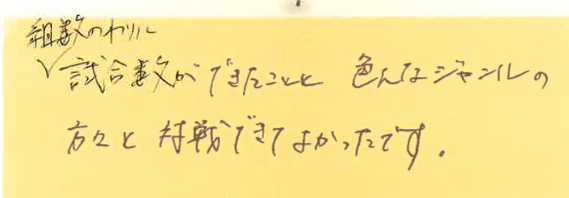 組数のわりに
試合数ができたことと 色んなジャンルの
方々と対戦できてよかったです。